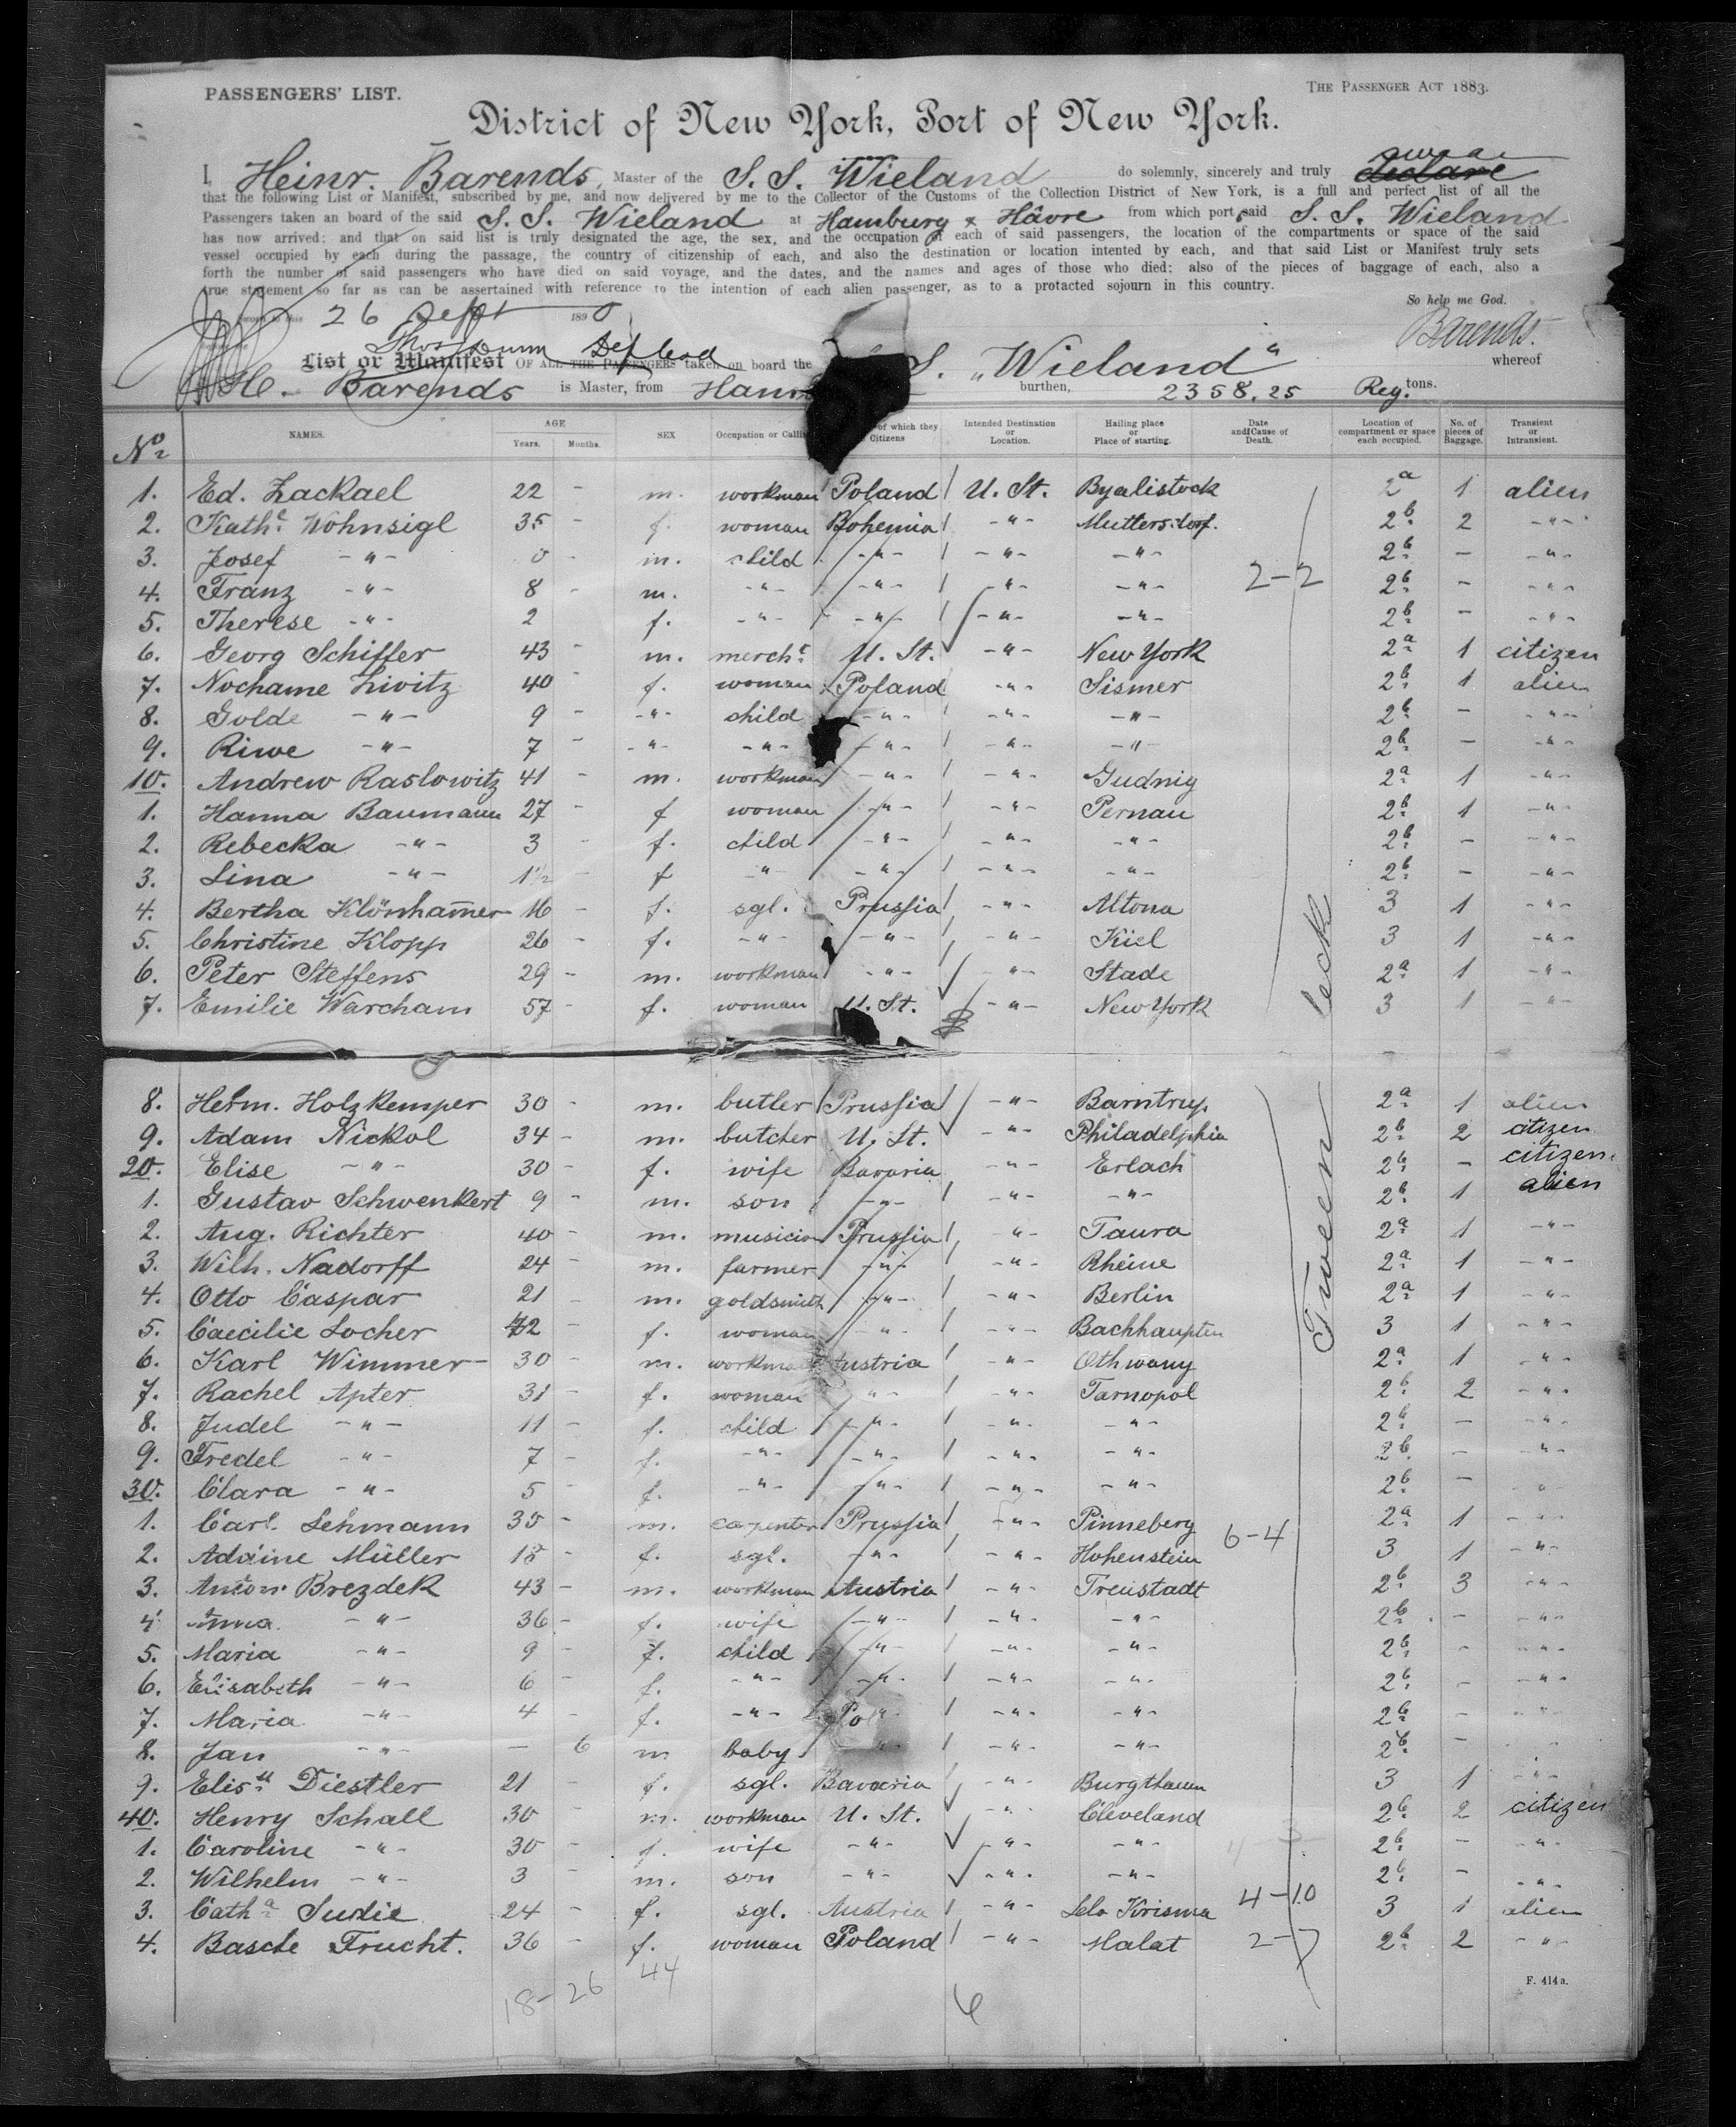 PASSENGERS' LIST.
THE PASSENGER ACT 1883.
District of New York, Port of New York.
I, Heinr. Barends, Master of the S. S. Wieland do solemnly, sincerely and truly swear declare
that the following List or Manifest, subscribed by me, and now delivered by me to the Collector of the Customs of the Collection District of New York, is a full and perfect list of all the
Passengers taken an board of the said S. S. Wieland at Hamburg & Hâvre from which port said S. S. Wieland
has now arrived; and that on said list is truly designated the age, the sex, and the occupation of each of said passengers, the location of the compartments or space of the said
vessel occupied by each during the passage, the country of citizenship of each, and also the destination or location intented by each, and that said List or Manifest truly sets
forth the number of said passengers who have died on said voyage, and the dates, and the names and ages of those who died; also of the pieces of baggage of each, also a
true statement so far as can be assertained with reference to the intention of each alien passenger, as to a protacted sojourn in this country.
So help me God.
to this 26 Sept 1890
Barends.
List or Manifest OF ALL THE PASSENGERS taken on board the S. „Wieland" whereof
H. Barends is Master, from burthen, 2358,25 Reg. tons.
No NAMES. AGE Years. Months. SEX Occupation or of which they Citizens Intended Destination or Location. Hailing place or Place of starting. Date and Cause of Death. Location of compartment or space each occupied. No. of pieces of Baggage. Transient or Intransient.
1. Ed. Zackael 22 - m. workman Poland U. St. Byalistock 2a 1 alien
2. Kathe Wohnsigl 35 - f. woman Bohemia -"- Muttersdorf. 2b 2 -"-
3. Josef -"- - m. child -"- -"- -"- 2b - -"-
4. Franz -"- 8 - m. -"- -"- -"- -"- 2-2 2b - -"-
5. Therese -"- 2 f. -"- -"- -"- -"- 2b - -"-
6. Georg Schiffer 43 - m. mercht U. St. -"- New York 2a 1 citizen
7. Nochame Liwitz 40 - f. woman Poland -"- Sismer 2b 1 alien
8. Golde -"- 9 - -"- child -"- -"- -"- 2b - -"-
9. Riwe -"- 7 - -"- -"- -"- -"- -"- 2b - -"-
10. Andrew Raslowitz 41 - m. workman -"- -"- Gudnig 2a 1 -"-
1. Hanna Baumann 27 - f woman -"- -"- Pernau 2b 1 -"-
2. Rebecka -"- 3 - f. child -"- -"- -"- 2b - -"-
3. Lina -"- 1½ - f -"- -"- -"- -"- 2b - -"-
4. Bertha Klönhamer 16 - f. sgl. Prussia -"- Altona 3 1 -"-
5. Christine Klopp 26 - f. -"- -"- -"- Kiel 3 1 -"-
6. Peter Steffens 29 - m. workman -"- -"- Stade 2a 1 -"-
7. Emilie Warcham 57 - f. woman U. St. -"- New York 3 1 -"-
8. Herm. Holzkemper 30 - m. butler Prussia -"- Barntrup 2a 1 alien
9. Adam Nickol 34 - m. butcher U. St. -"- Philadelphia 2b 2 citizen
20. Elise -"- 30 - f. wife Bavaria -"- Erlach 2b - citizen.
1. Gustav Schwenkert 9 - m. son -"- -"- -"- 2b 1 alien
2. Aug. Richter 40 - m. musician Prussia -"- Taura 2a 1 -"-
3. Wilh. Nadorff 24 - m. farmer -"- -"- Rheine 2a 1 -"-
4. Otto Caspar 21 - m. goldsmith -"- -"- Berlin 2a 1 -"-
5. Caecilie Locher - f. woman -"- -"- Bachhaupten 3 1 -"-
6. Karl Wimmer 30 - m. workman Austria -"- Othwany 2a 1 -"-
7. Rachel Apter 31 - f. woman -"- -"- Tarnopol 2b 2 -"-
8. Judel -"- 11 - f. child -"- -"- -"- 2b - -"-
9. Fredel -"- 7 - f. -"- -"- -"- -"- 2b - -"-
30. Clara -"- 5 - f. -"- -"- -"- -"- 2b - -"-
1. Carl Lehmann 35 - m. carpenter Prussia -"- Pinneberg 2a 1 -"-
2. Müller 18 - f. sgl. -"- -"- Hohenstein 6-4 3 1 -"-
3. Anton Brezdek 43 - m. workman Austria -"- Freustadt 2b 3 -"-
4. Anna -"- 36 - f. wife -"- -"- -"- 2b - -"-
5. Maria -"- 9 - f. child -"- -"- -"- 2b - -"-
6. Elisabeth -"- 6 - f. -"- -"- -"- -"- 2b - -"-
7. Maria -"- 4 - f. -"- -"- -"- 2b - -"-
8. Jan -"- - 6 m baby -"- -"- -"- 2b - -"-
9. Elisth Diestler 21 - f. sgl. Bavaria -"- Burgthann 3 1 -"-
40. Henry Schall 30 - m. workman U. St. -"- Cleveland 2b 2 citizen
1. Caroline -"- 30 - f. wife -"- -"- -"- 2b - -"-
2. Wilhelm -"- 3 - m. son -"- -"- -"- 2b - -"-
3. Catha Sudie 24 - f. sgl. Austria -"- Selo Krisma 4-10 3 1 alien
4. Basche Frucht. 36 - f. woman Poland -"- Malat 2-7 2b 2 -"-
Tween Deck
18-26 44
F. 414a.